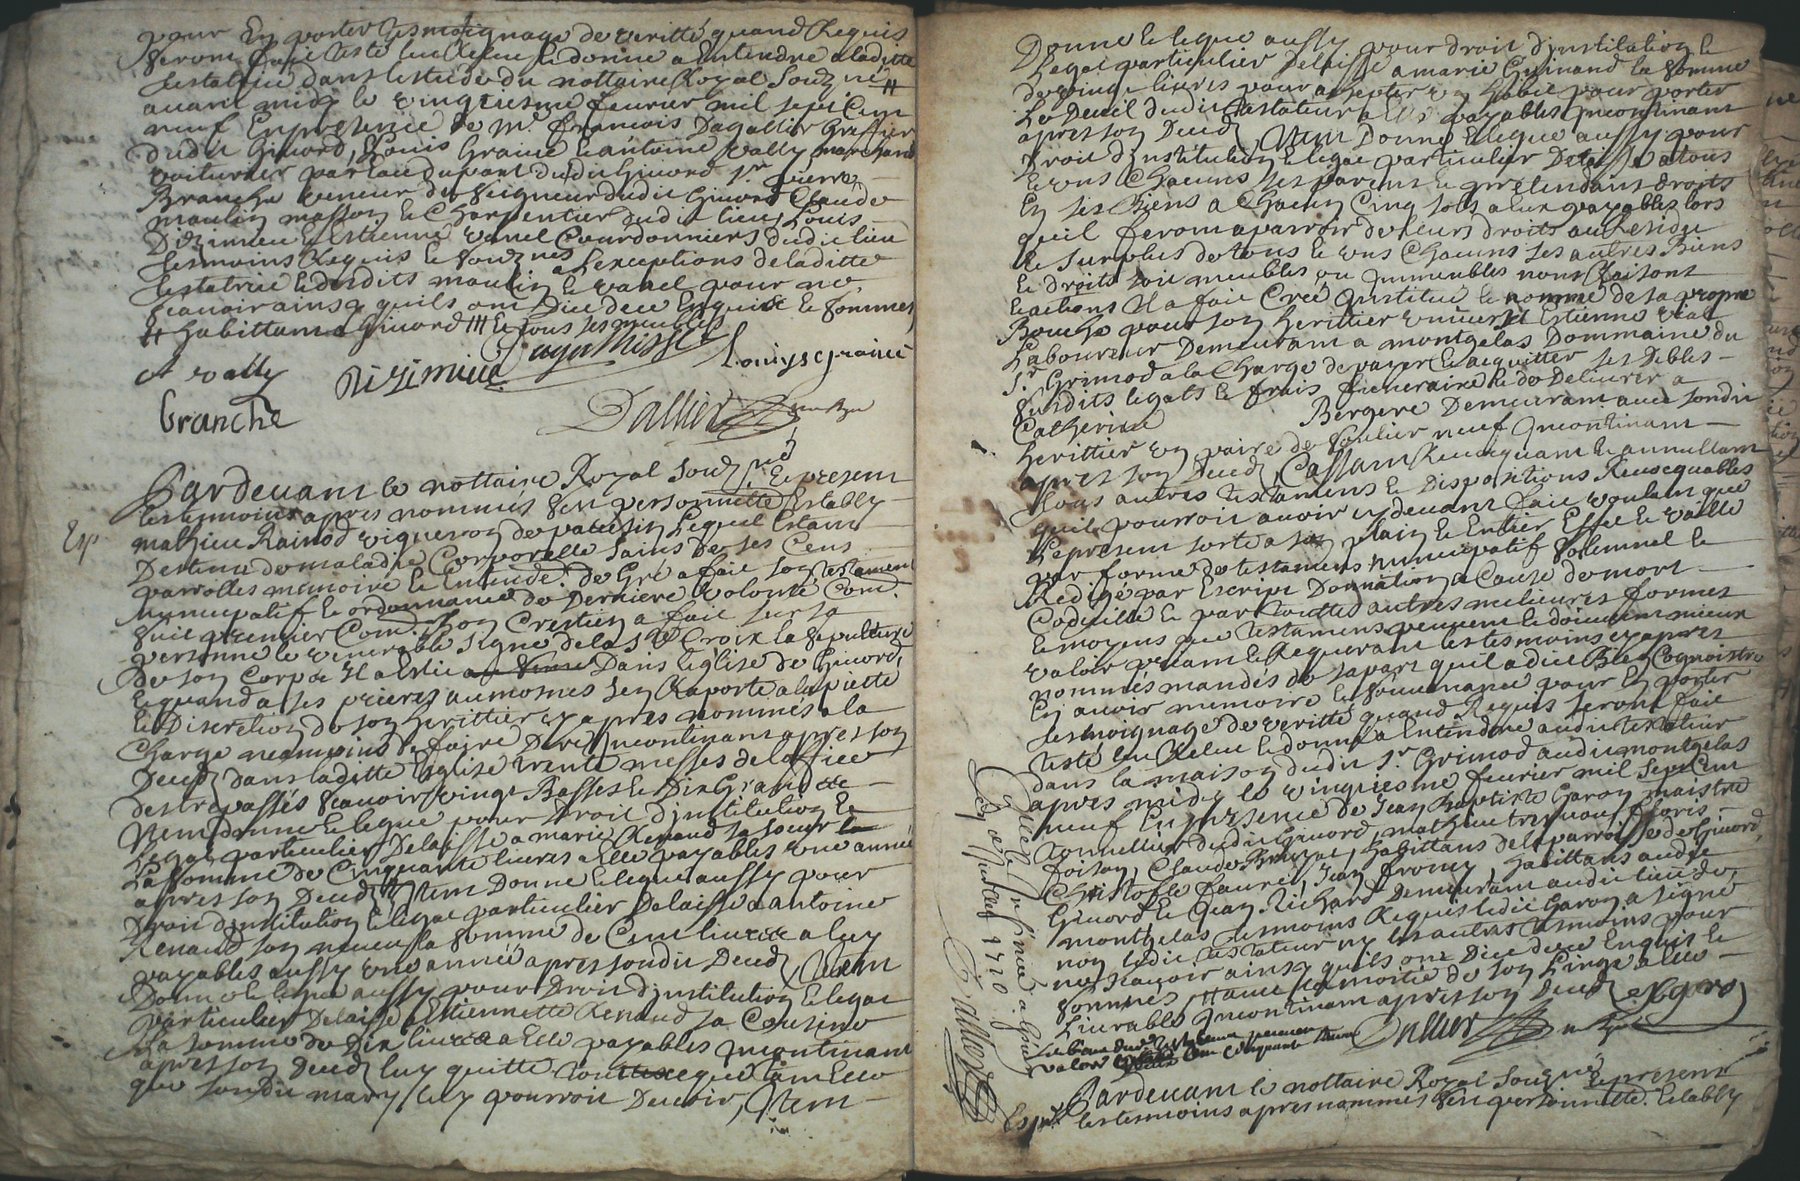 pour En porter tesmoignage de veritté quand Requis
seront faict Leu Releu & donné a Entendre a laditte
testatrice dans lestude du nottaire Royal souz né #
avant midy le vingtiesme feuvrier mil sept Cent
neuf En presence de Mr. francois Dagallier Greffier
dudit Givord, Louis Graine & antoine Vally marchand
voiturier par eau dudit Givord Sr. pierre
Branche veneur du seigneur dudit Givord Claude
moulin masson & Charpentier dudit lieu, Louis
Dizimieu & Estienne Vanel Courdonniers dudit lieu
tesmoins Requis & souz nés a lexceptions de laditte
testatrice & desdits moulin & Vanel pour ne
scavoir ainsy quils ont Dict de ce Enquis & sommés
# habittants Givord
A vally
Dizimieu
Louys graine
branche
Dallier
Pardevant le nottaire Royal souz né & present
les tesmoins apres nommés sen personnelle Estably
Exp
mathieu Rainod vigneron de lequel Estant
Destenu de maladie Corporelle sains de ses Cens
parrolles memoire & Entende. de Gré a faict son testament
nuncupatif & ordonnance de Derniere volonté Com.
suit premier Com. bon Crestien a faict sur sa
personne le venerable signe de la Ste Croix la sepulture
de son Corps Il a Eslit dans leglise de Givord,
& quand a ses prieres aumosnes sen Raporte a la piette
& Discretion de son herittier cy apres nommés a la
Charge neanmoins de faire Dire Incontinant apres son
Decedz dans laditte Eglise trente messes de loffice
des trepassés scavoir vingt Basses & Dix Grandes
Item donne & legue pour droit dinstitution &
legat particulier Delaisse a marie Renaud sa soeur
La somme de Cinquante livres a Elle payables une année
apres son Decedz Item Donne & legue aussy pour
Droit dinstitution & legat particulier Delaisse a antoine
Renaud son neveu la somme de Cent livres a luy
payables aussy une année apres sondit Decedz Item
Donne & legue aussy pour Droit dinstitution & legat
particulier Delaisse a Estiennette Renaud sa Cousine
La somme de Dix livres a Elle payables Incontinant
apres son Decedz luy quitte tout ce que tant Elle
que sondit mary luy pourroit Devoir, Item
Donne & legue aussy pour droit dinstitution &
legat particulier Delaisse a marie Guinand la somme
de vingt livres pour achepter un habit pour porter
Le Deuil dudit testateur a Elle payables Incontinant
apres son Decedz, Item Donne & legue aussy pour
Droit dinstitution & legat particulier Delaisse a tous
& uns Chacuns ses parens & pretendans droits
En ses Biens a Chacun Cinq sols a Eux payables lors
quil feront aparroir de leurs droits au Residu
& surplus de tous & uns Chacuns ses autres Biens
& droits soit meubles ou Immeubles noms Raisons
& actions Il a faict Creé Institué & nommé de sa propre
Bouche pour son herittier universel Estienne Vial
Laboureur Demeurant a montgelas Dommaine du
Sr. Grimod a la Charge de payer & acquitter ses Debtes
susdits legats & frais funeraire & de Delivrer a
Catherine Bergere Demeurant avec sondit
herittier un paire de soulier neuf Incontinant
apres son Decedz Cassant Revoquant & annullant
tous autres testamens & Dispositions Revocquables
quil pourroit avoir cy devant faict voulant que
Le present sorte a son plain & Entier Effet & vaille
par forme de testament nuncupatif solemnel &
Redigé par Escript Donnation a Cause de mort
Codicille & par touttes autres meilieures formes
& moyens que testamens peuvent & doivent mieux
valoir priant & Requerant les tesmoins cy apres
nommés mandés de sa part quil a dict Bien Cognoistre
En avoir memoire & souvenance pour En porter
tesmoignage de veritté quand Requis seront faict
Leu Releu & donné a Entendre audit testateur
dans la maison dudit Sr. Grimod audit montgelas
apres midy le vingtiesme feuvrier mil sept Cent
neuf En presence de Jean Baptiste Garon maistre
tonnellier dudit Givord, mathieu floris
foison, Claude habittans de la parroisse de Givord,
Christofle faure, Jean fromy habittans audit
Givord & Jean Richard Demeurant audit lieu de
montgelas tesmoins Requis ledit Garon a signé
non ledit testateur ny les autres tesmoins pour
ne scavoir ainsy quils ont Dict de ce Enquis &
sommés, la moitié de son linge a Elle
Livrable Incontinant apres son Decedz
Dallier
Pardevant le nottaire Royal sougné & present
Exp
les tesmoins apres nommés sen personnelle. Estably
1720
Dallier